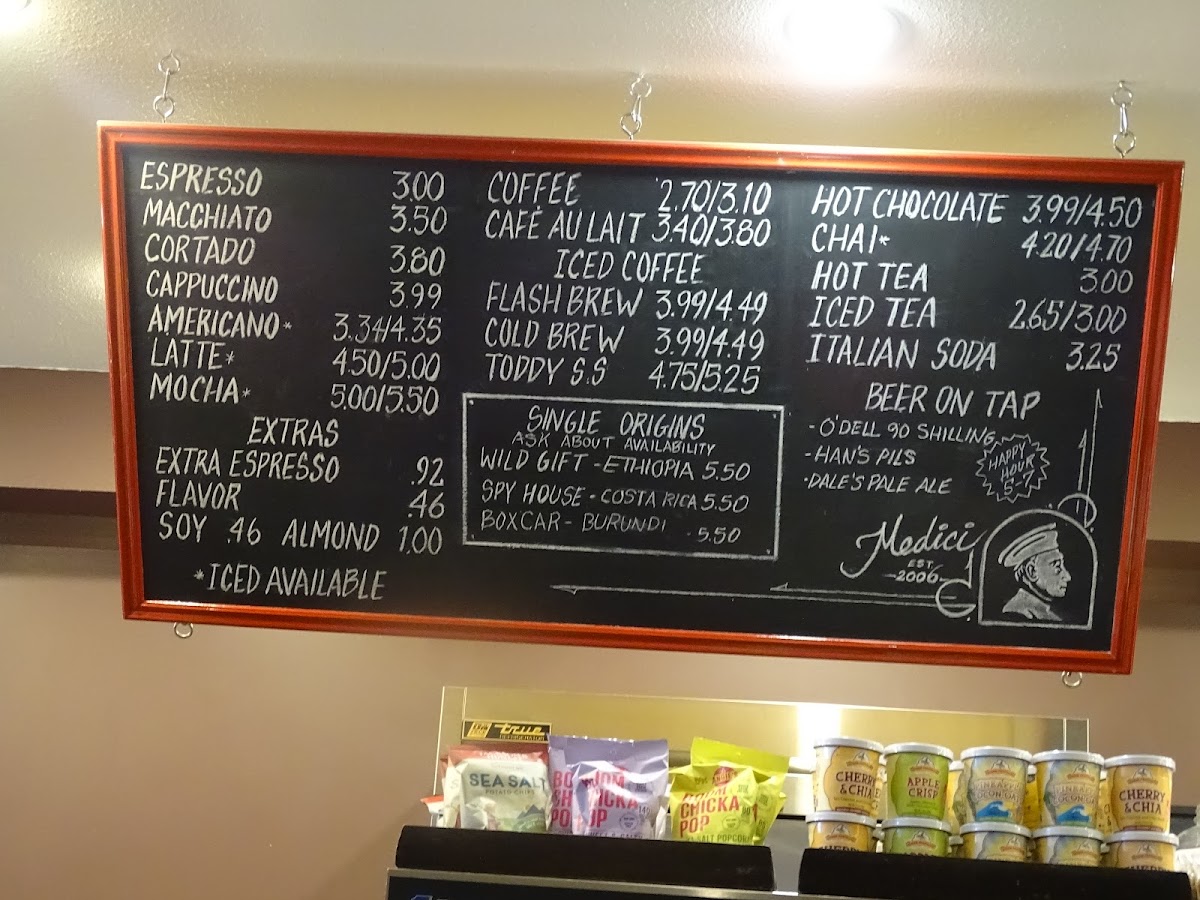 ESPRESSO 3.00
MACCHIATO 3.50
CORTADO 3.80
CAPPUCCINO 3.99
AMERICANO* 3.34/4.35
LATTE* 4.50/5.00
MOCHA* 5.00/5.50
EXTRAS
EXTRA ESPRESSO .92
FLAVOR .46
SOY .46 ALMOND 1.00
*ICED AVAILABLE
COFFEE 2.70/3.10
CAFÉ AU LAIT 3.40/3.80
ICED COFFEE
FLASH BREW 3.99/4.49
COLD BREW 3.99/4.49
TODDY S.S 4.75/5.25
SINGLE ORIGINS
ASK ABOUT AVAILABILITY
WILD GIFT - ETHIOPIA 5.50
SPY HOUSE - COSTA RICA 5.50
BOXCAR - BURUNDI - 5.50
HOT CHOCOLATE 3.99/4.50
CHAI* 4.20/4.70
HOT TEA 3.00
ICED TEA 2.65/3.00
ITALIAN SODA 3.25
BEER ON TAP
- O'DELL 90 SHILLING
- HAN'S PILS
- DALE'S PALE ALE
HAPPY
HOUR
5
Medici
EST.
2006
true
SEA SALT
POTATO CHIPS
BOOM
CHICKA
POP
CHICKA
POP
SEA SALT POPCORN
CHERRY
& CHIA
APPLE
CRISP
CHERRY
& CHIA